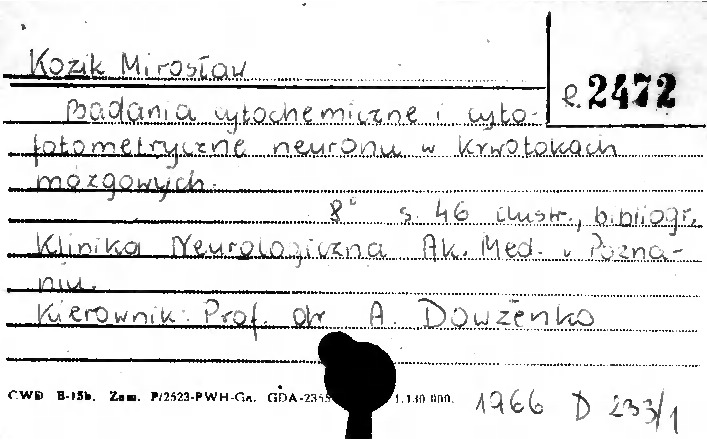 Kozik Mirosław
e. 2472
Badania cytochemiczne i cyto-
fotometryczne neuronu w krwotokach
mózgowych.
8° s. 46 ilustr., bibliogr.
Klinika Neurologiczna Ak. Med. w Pozna-
niu.
Kierownik: Prof. dr A. Dowżenko
CWD B-15b. Zam. P/2523-PWH-Gn. GDA-2355 1.130 000.
1966 D 233/1